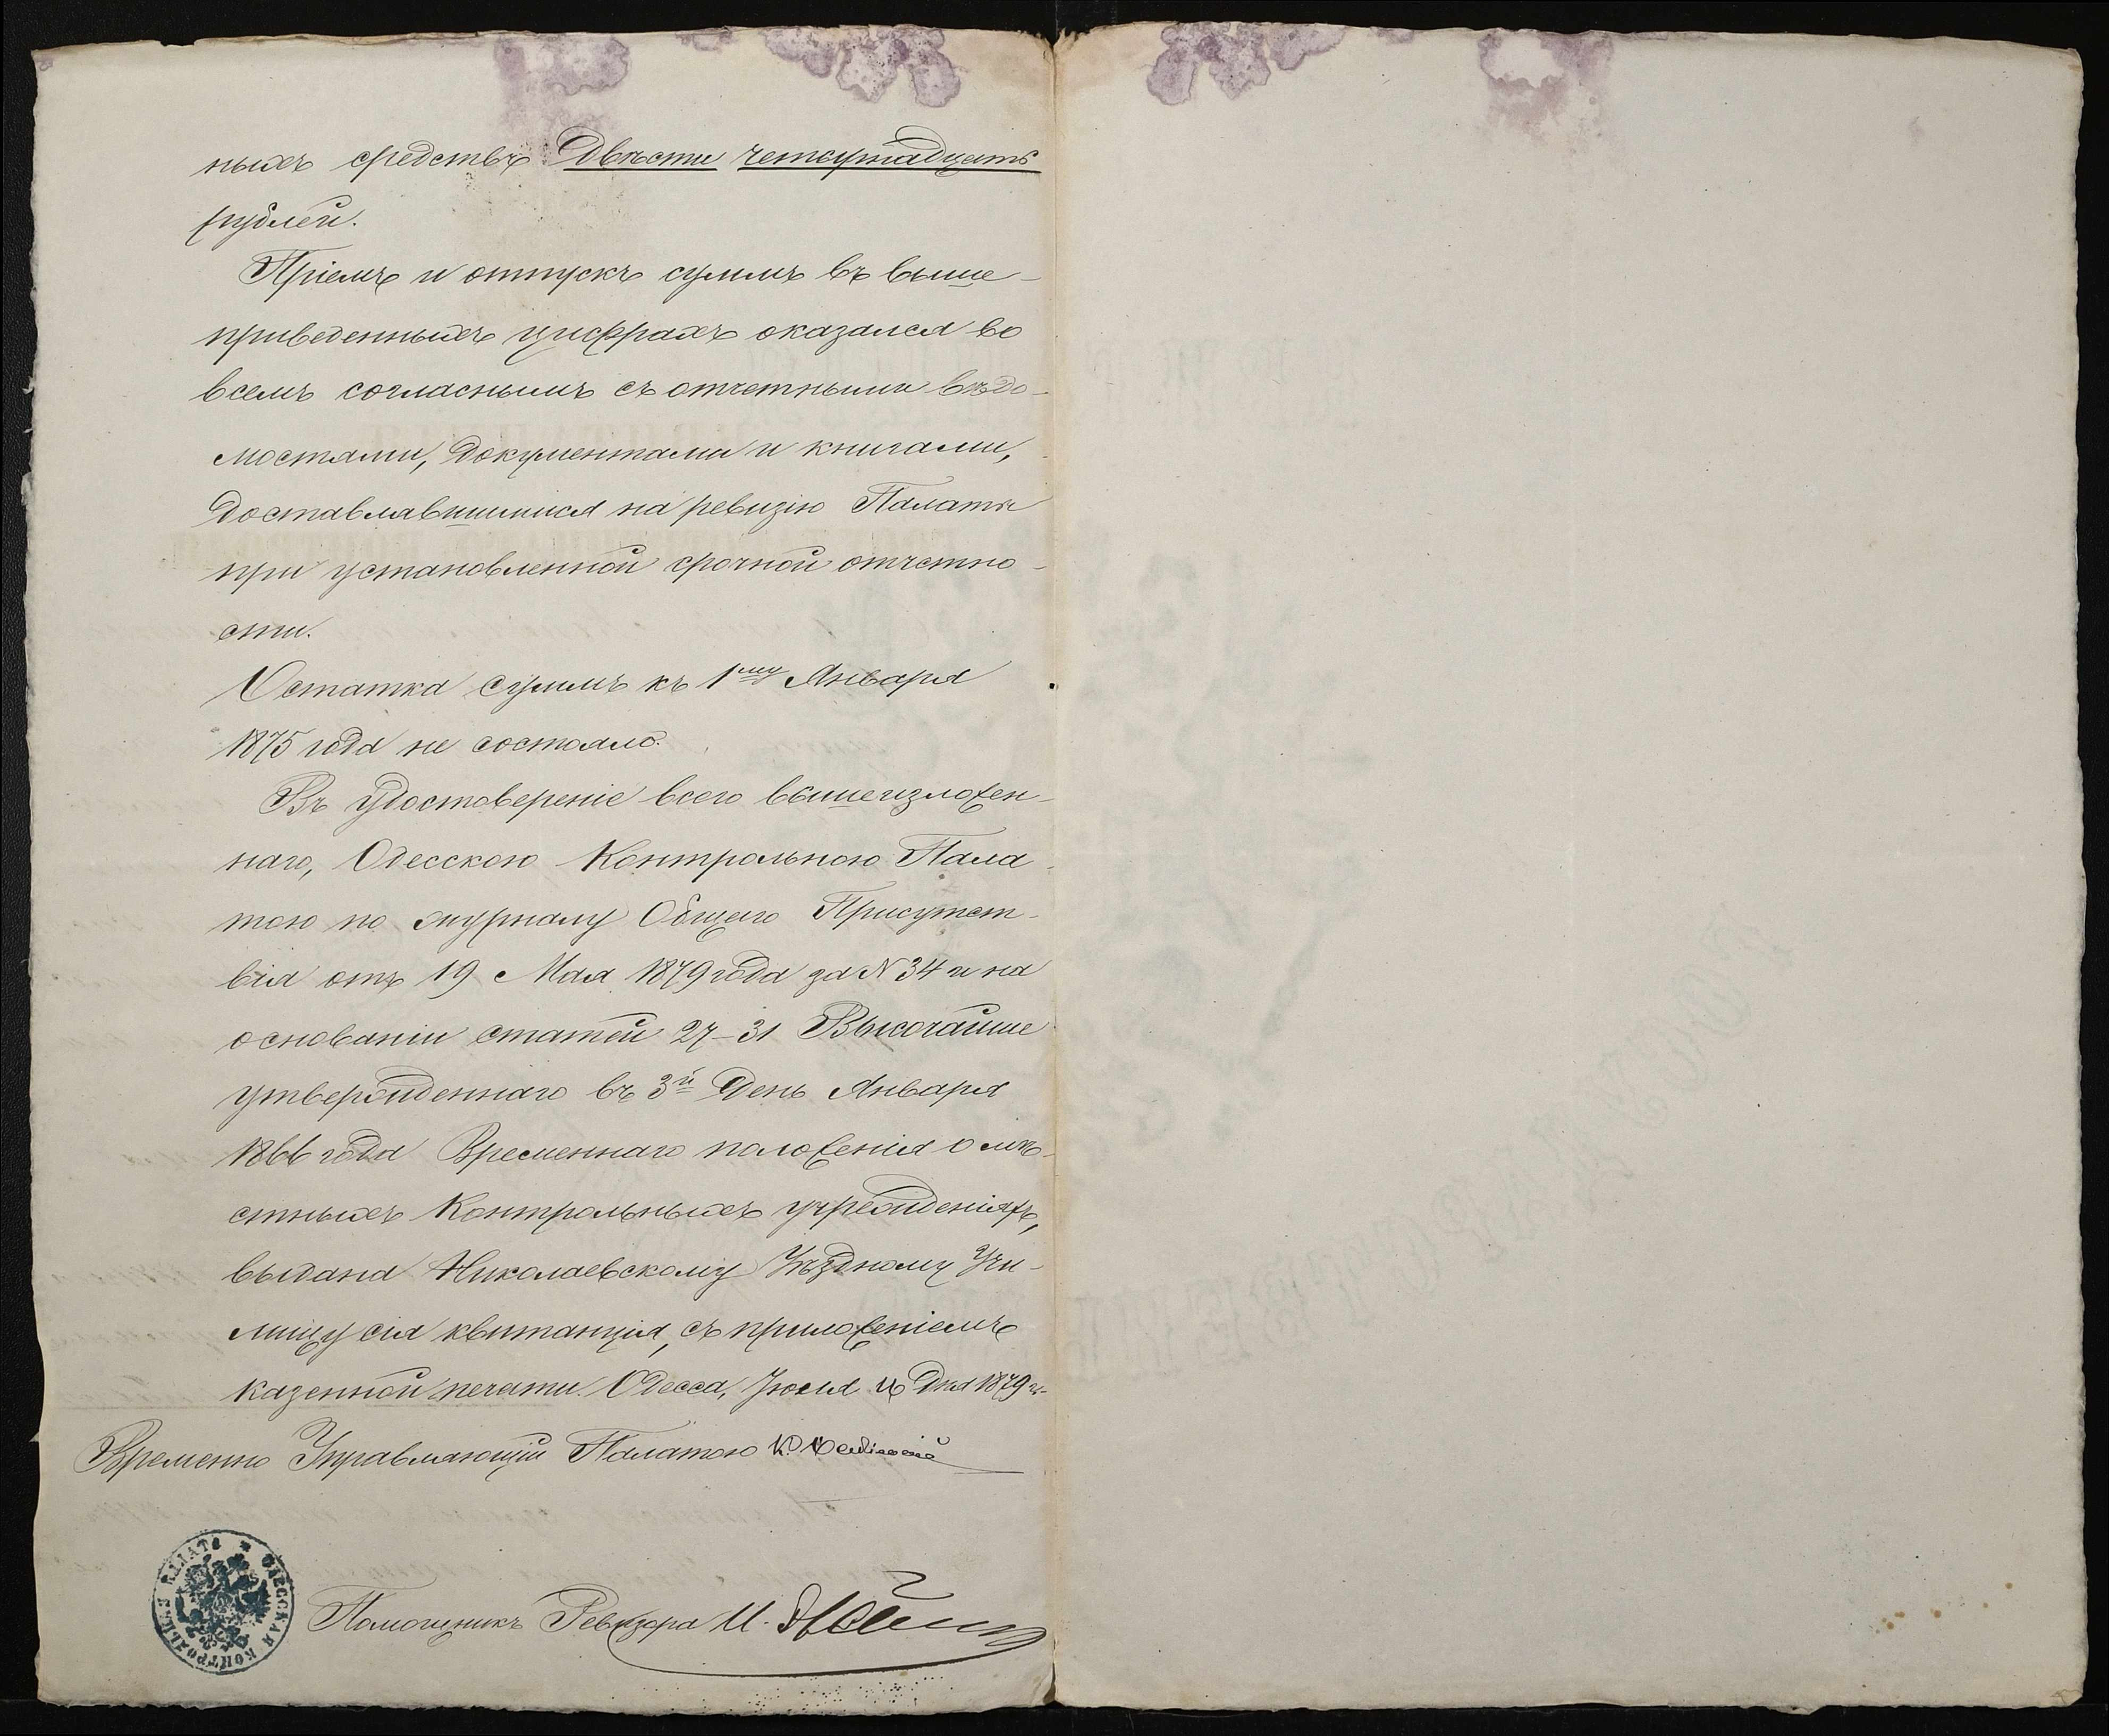 ныхъ средствъ Двѣсти четырнадцать
рублей.
Пріемъ и отпускъ суммъ въ выше-
приведенныхъ цифрахъ оказался во
всемъ согласнымъ съ отчетными вѣдо-
мостями, документами и книгами,
доставлявшимися на ревизію Палаты
при установленной срочной отчетно-
сти.
Остатка суммъ къ 1му Января
1875 года не состояло.
Въ удостовереніе всего вышеизложен-
наго, Одесскою Контрольною Пала-
тою по журналу Общаго Присутст-
вія отъ 19 Мая 1879 года за N 34 и на
основаніи статей 27-31 Высочайше
утвержденнаго въ 3й день Января
1866 года Временнаго положенія о мѣ-
стныхъ Контрольныхъ учрежденіяхъ,
выдана Николаевскому Уѣздному Учи-
лищу сія квитанція, съ приложеніемъ
казенной печати. Одесса, дня 1879 г.
Временно Управляющій Палатою К.
ОДЕССКАЯ КОНТРОЛЬНАЯ ПАЛАТА
Помощникъ Ревизора И.